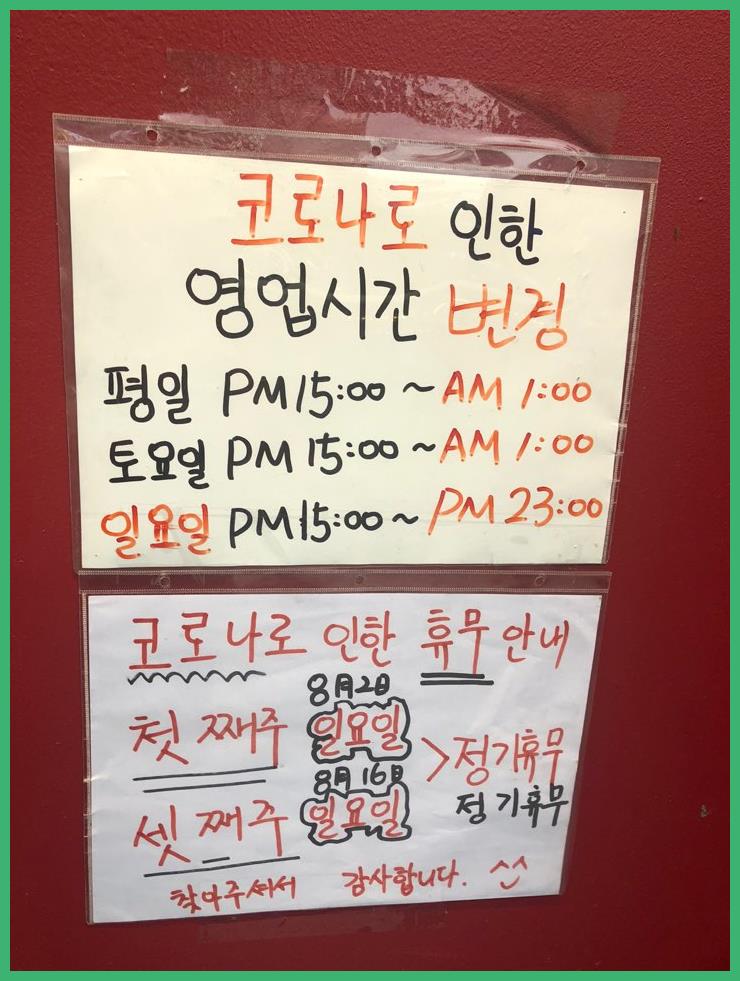 코로나로 인한
영업시간 변경
평일 PM 15:00 ~ AM 1:00
토요일 PM 15:00 ~ AM 1:00
일요일 PM 15:00 ~ PM 23:00
코로나로 인한 휴무 안내
8月2日
첫째주 일요일 > 정기휴무
8月16日
셋째주 일요일 정기휴무
찾아주셔서 감사합니다. ^^